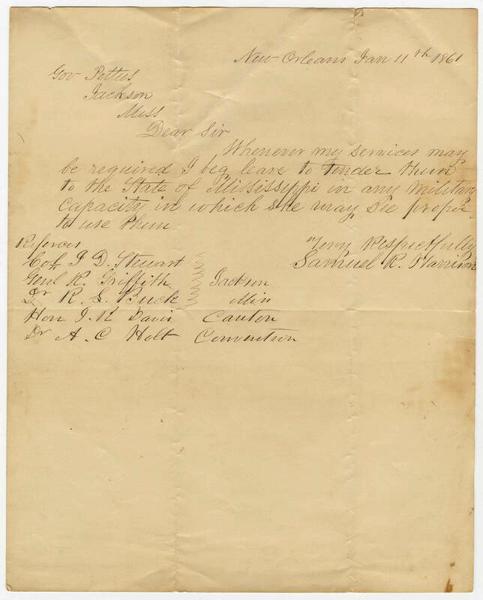 New Orleans Jan 11th 1861
Gov Pettus
Jackson
Miss
Dear Sir
Whenever my services may
be required I beg leave to tender them
to the State of Mississippi in any military
capacity in which she may see proper
to use them.
Very Respectfully
Samuel R. Harrison
Refernces
Col J D Stewart
Genl R. Griffith Jackson
Dr R. S. Buck Miss
Hon J. R Davis Canton
Dr A. C Holt Convention